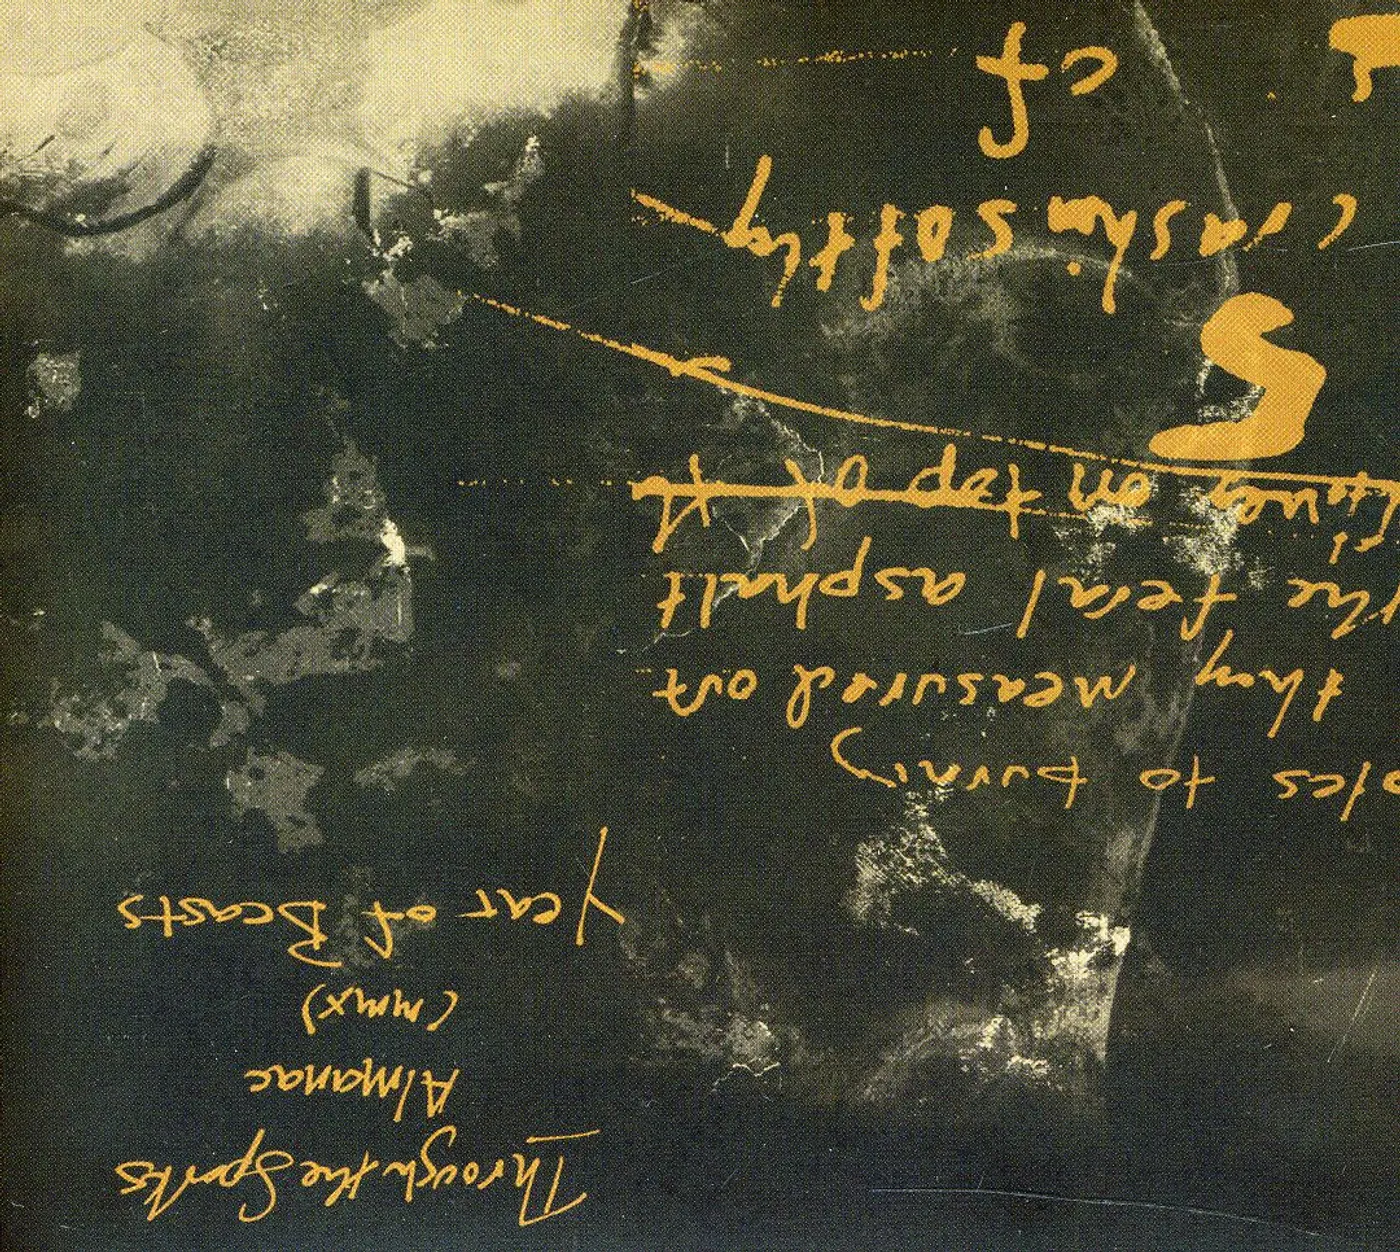 Through the Sparks
Almanac
(mmx)
Year of Beasts
to burning
they measured out
the feral asphalt
on top of th
S
crashin softly